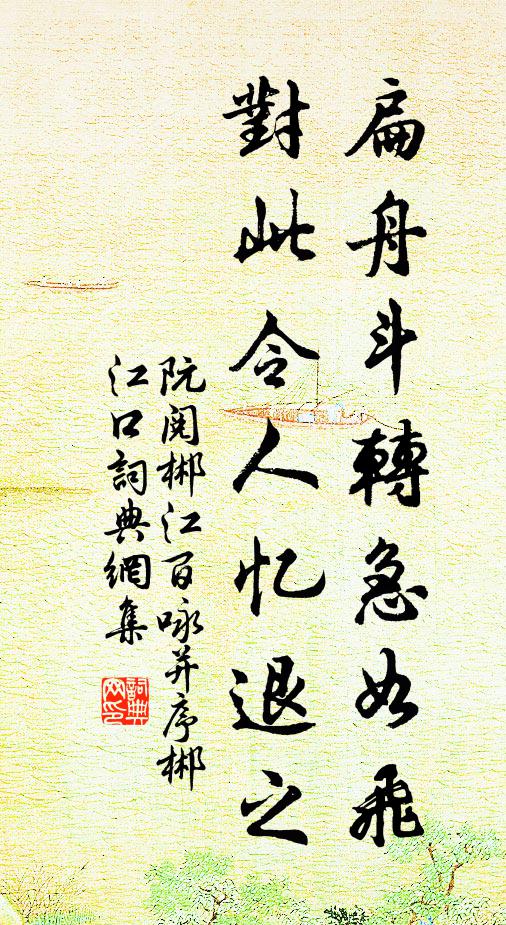 扁舟斗轉急如飛
對此令人忆退之
阮阅郴江百咏并序郴
江口詞典網集
詞典
网印